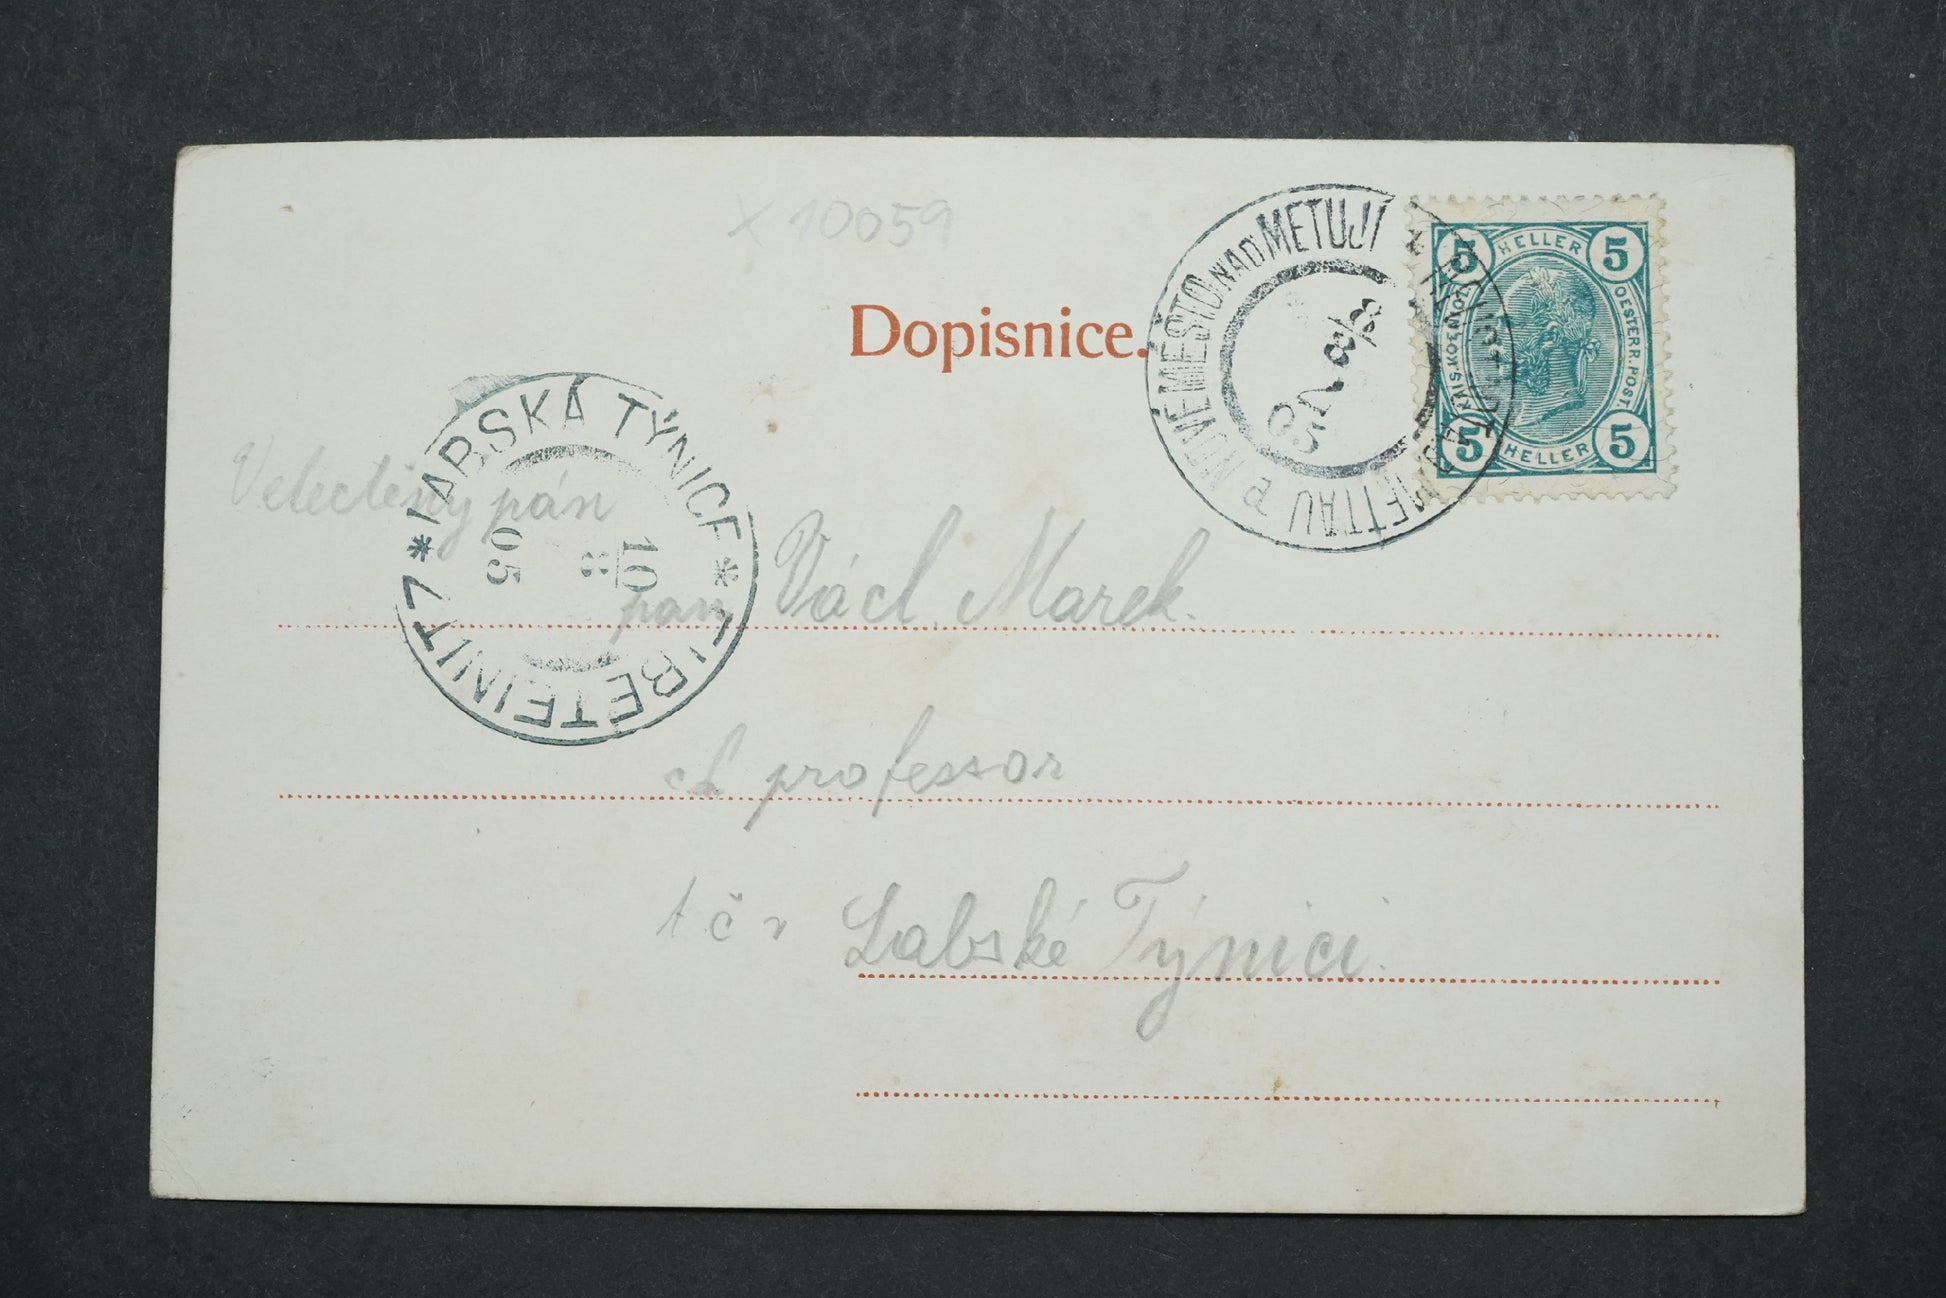 x 10059
Dopisnice.
NOVÉ MĚSTO NAD METUJÍ
METTAU
8/8
05
5 HELLER 5
KAIS. KÖNIGL.
OESTERR. POST.
5 HELLER 5
* LABSKÁ TÝNICE *
ELBETEINITZ
10
8
05
Velectěný pán
pan Václ. Marek.
professor
t č v Labské Týnici.